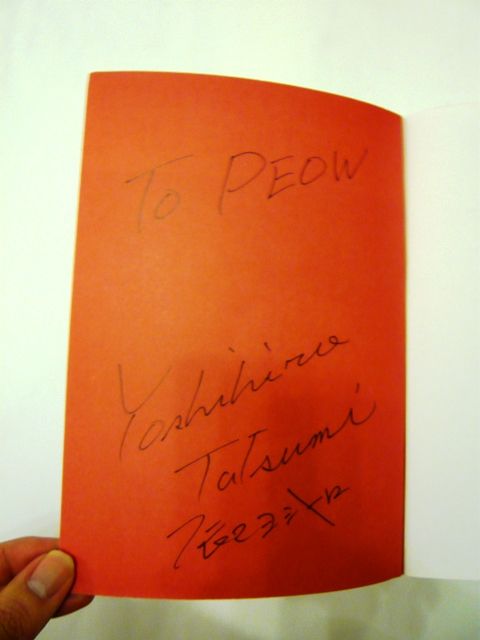 To PEOW
Yoshihiro
Tatsumi
辰巳ヨシヒロ